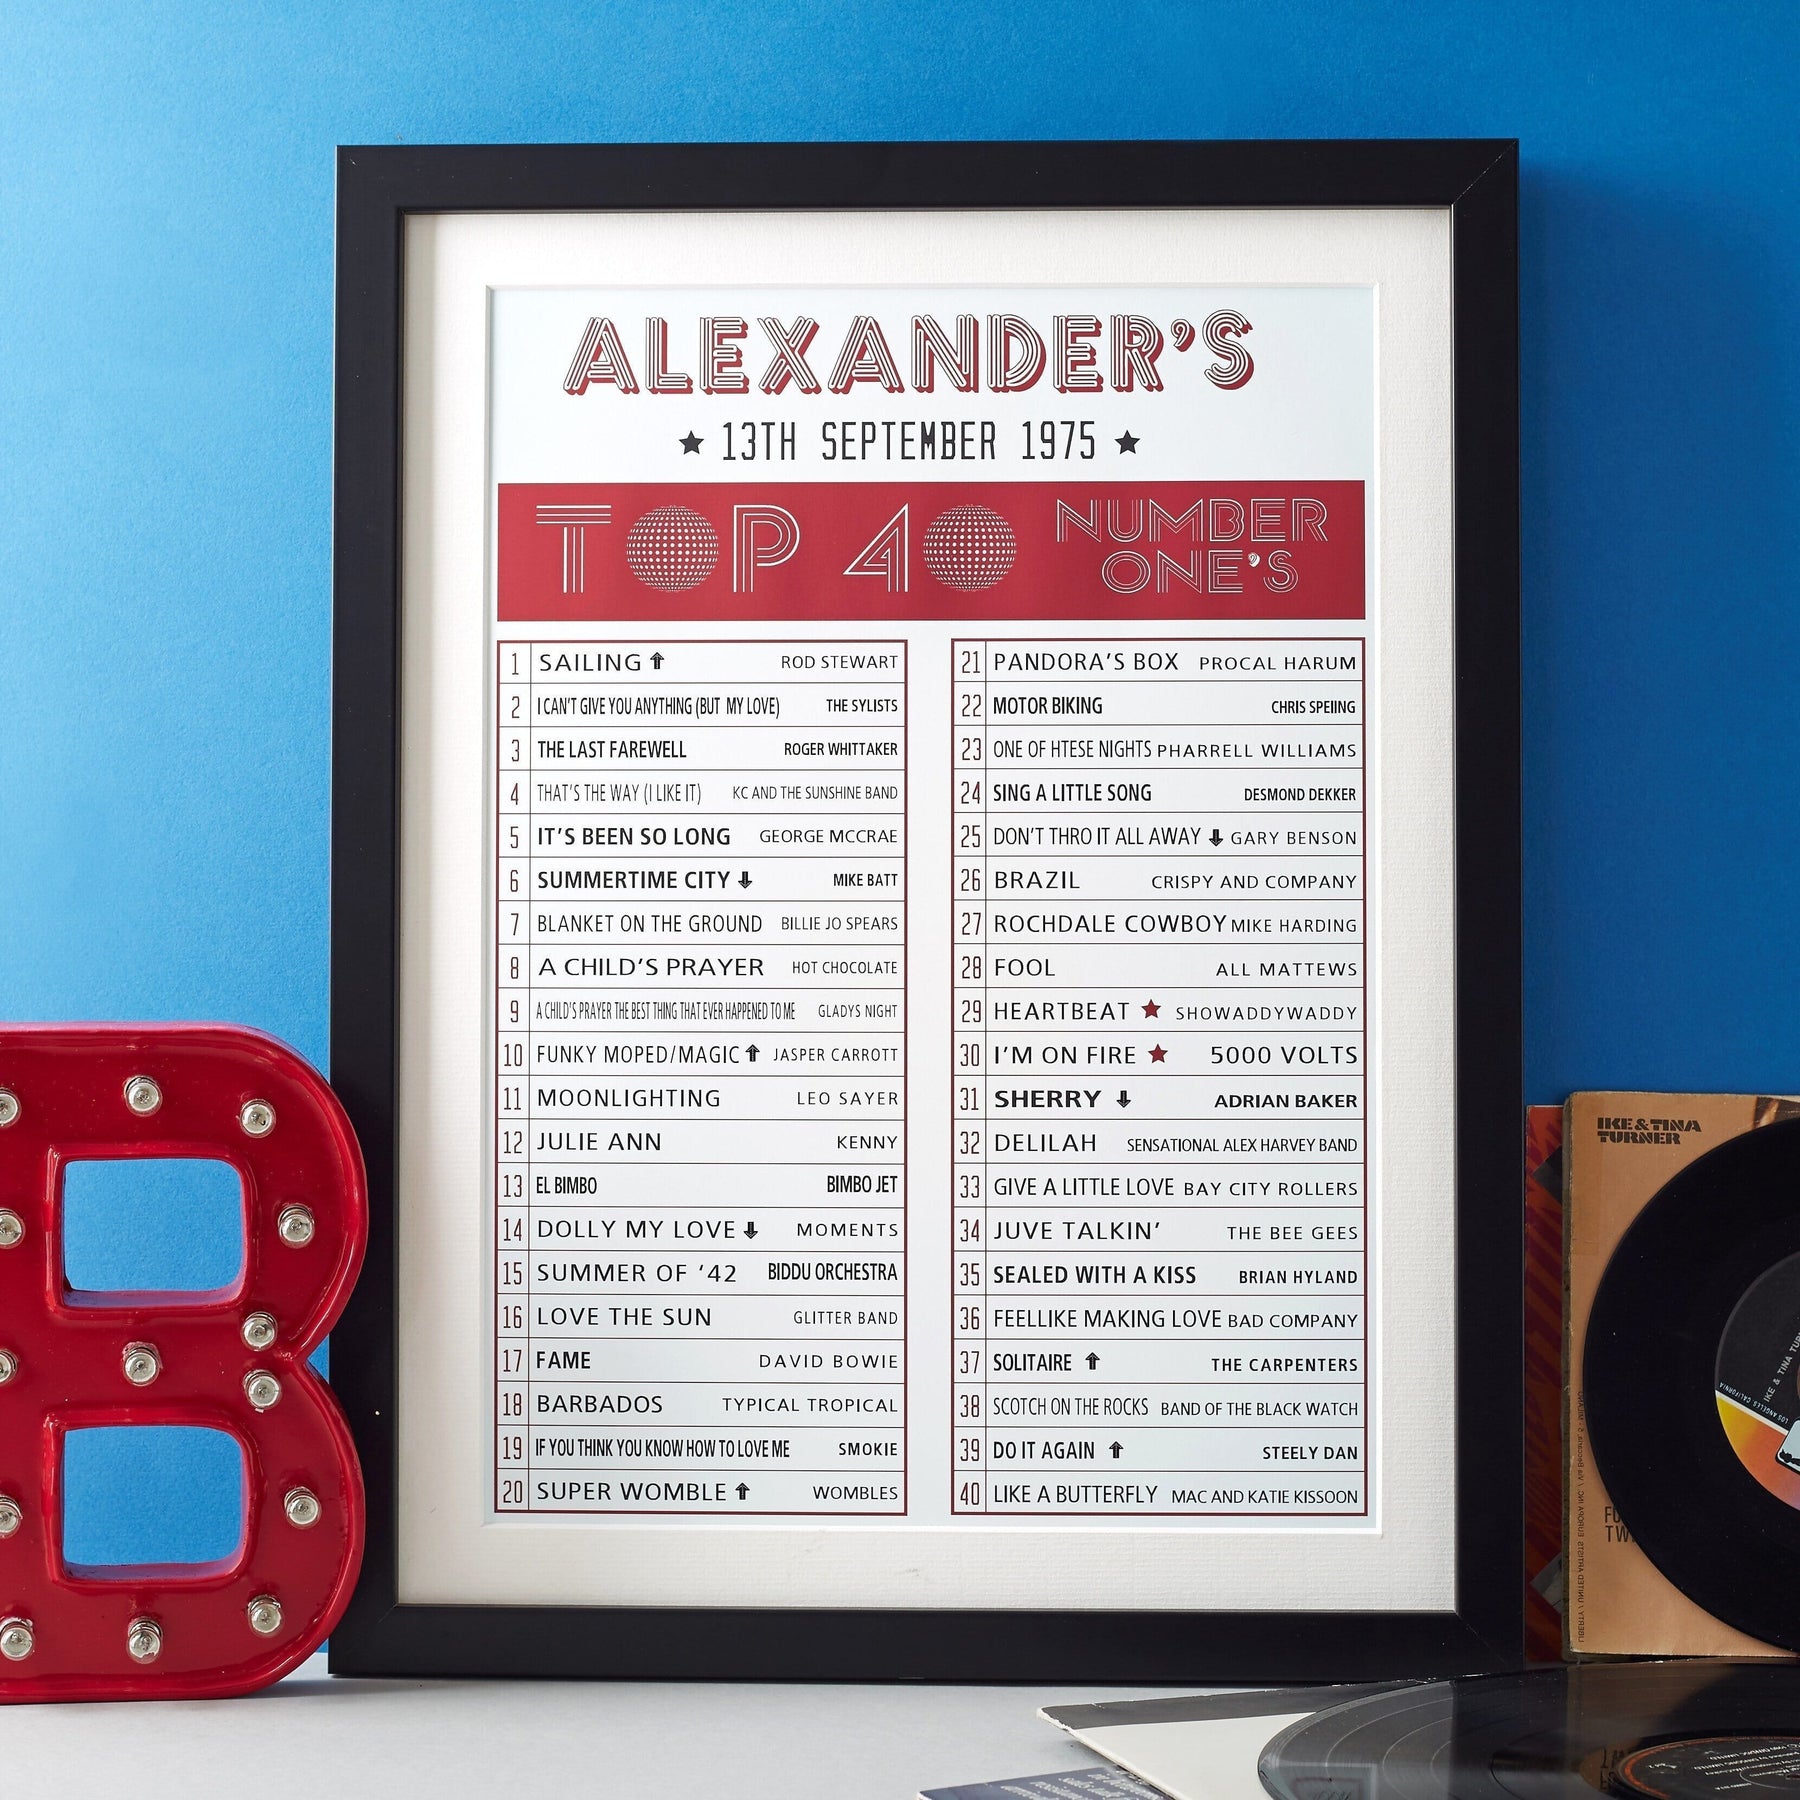 ALEXANDER'S
★ 13TH SEPTEMBER 1975 ★
TOP 40 NUMBER ONE'S
1 SAILING ROD STEWART
2 I CAN'T GIVE YOU ANYTHING (BUT MY LOVE) THE SYLISTS
3 THE LAST FAREWELL ROGER WHITTAKER
4 THAT'S THE WAY (I LIKE IT) KC AND THE SUNSHINE BAND
5 IT'S BEEN SO LONG GEORGE MCCRAE
6 SUMMERTIME CITY MIKE BATT
7 BLANKET ON THE GROUND BILLIE JO SPEARS
8 A CHILD'S PRAYER HOT CHOCOLATE
9 A CHILD'S PRAYER THE BEST THING THAT EVER HAPPENED TO ME GLADYS NIGHT
10 FUNKY MOPED/MAGIC JASPER CARROTT
11 MOONLIGHTING LEO SAYER
12 JULIE ANN KENNY
13 EL BIMBO BIMBO JET
14 DOLLY MY LOVE MOMENTS
15 SUMMER OF '42 BIDDU ORCHESTRA
16 LOVE THE SUN GLITTER BAND
17 FAME DAVID BOWIE
18 BARBADOS TYPICAL TROPICAL
19 IF YOU THINK YOU KNOW HOW TO LOVE ME SMOKIE
20 SUPER WOMBLE WOMBLES
21 PANDORA'S BOX PROCAL HARUM
22 MOTOR BIKING CHRIS SPEIING
23 ONE OF HTESE NIGHTS PHARRELL WILLIAMS
24 SING A LITTLE SONG DESMOND DEKKER
25 DON'T THRO IT ALL AWAY GARY BENSON
26 BRAZIL CRISPY AND COMPANY
27 ROCHDALE COWBOY MIKE HARDING
28 FOOL ALL MATTEWS
29 HEARTBEAT ★ SHOWADDYWADDY
30 I'M ON FIRE ★ 5000 VOLTS
31 SHERRY ADRIAN BAKER
32 DELILAH SENSATIONAL ALEX HARVEY BAND
33 GIVE A LITTLE LOVE BAY CITY ROLLERS
34 JUVE TALKIN' THE BEE GEES
35 SEALED WITH A KISS BRIAN HYLAND
36 FEELLIKE MAKING LOVE BAD COMPANY
37 SOLITAIRE THE CARPENTERS
38 SCOTCH ON THE ROCKS BAND OF THE BLACK WATCH
39 DO IT AGAIN STEELY DAN
40 LIKE A BUTTERFLY MAC AND KATIE KISSOON
B
IKE & TINA
TURNER
IKE & TINA
LOS ANGELES CALIFORNIA